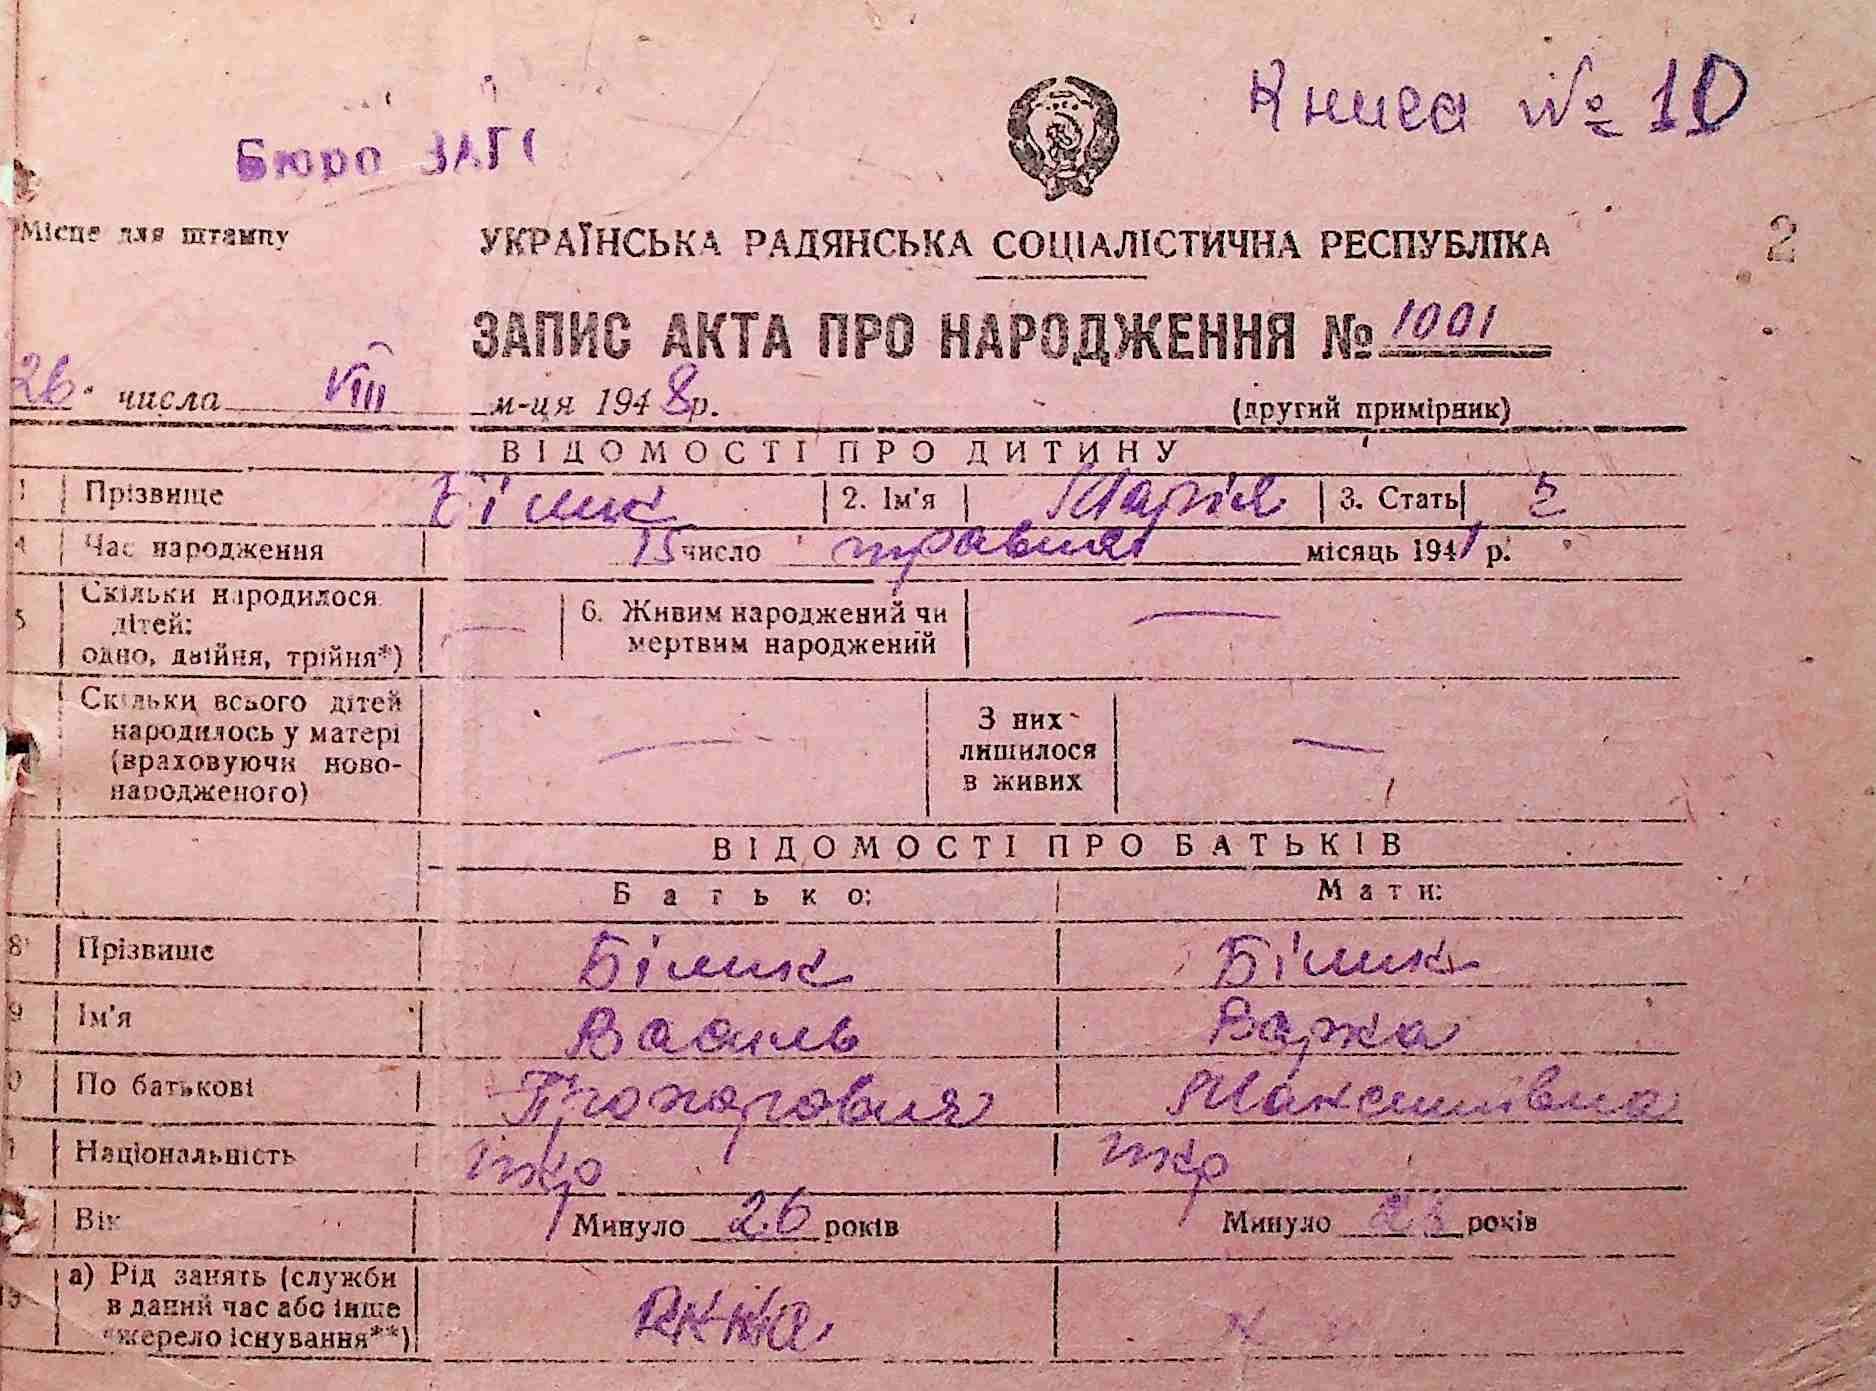 Книга № 10
Бюро ЗАГС
Місце для штампу
УКРАЇНСЬКА РАДЯНСЬКА СОЦІАЛІСТИЧНА РЕСПУБЛІКА
2
ЗАПИС АКТА ПРО НАРОДЖЕННЯ № 1001
26 числа VIII м-ця 1948 р. (другий примірник)
ВІДОМОСТІ ПРО ДИТИНУ
1 Прізвище Білик 2. Ім'я Марія 3. Стать
4 Час народження 15 число травня місяць 1941 р.
5 Скільки народилося дітей: одно, двійня, трійня*) — 6. Живим народжений чи мертвим народжений —
Скільки всього дітей народилось у матері (враховуючи ново-народженого) — З них лишилося в живих —
ВІДОМОСТІ ПРО БАТЬКІВ
Батько: Мати:
8 Прізвище Білик Білик
9 Ім'я Василь Варка
По батькові Прохорович Максимівна
Національність укр укр
Вік Минуло 26 років Минуло років
а) Рід занять (служби в даний час або інше джерело існування**) РККА